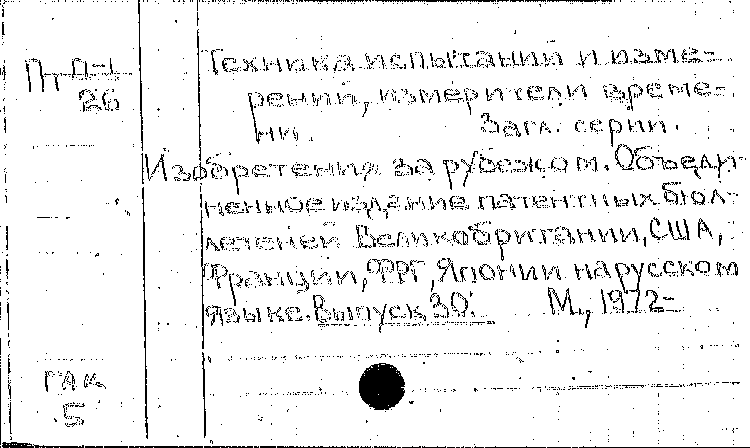 Пт П-1
26
Техника испытаний и изме-
рений, измерители време-
ни. Загл. серии.
Изобретения за рубежом. Объеди-
ненное издание патентных бюл-
летеней Великобритании, США,
Франции, ФРГ, Японии на русском
языке. Выпуск 30. М., 1972-
ГАК
5